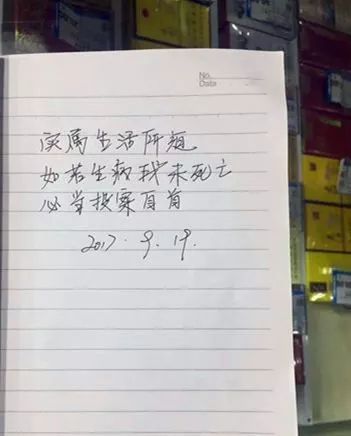 No.
Data
实属生活所迫
如若生病我未死亡
必当投案自首
2017.9.19.